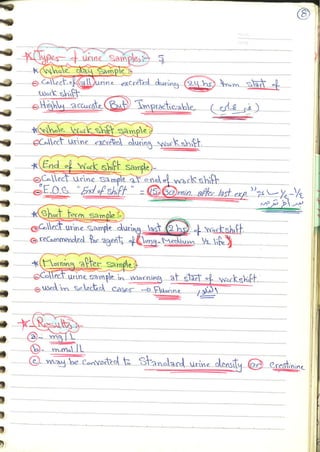 8
* Types of urine samples:-
* Whole day sample
⊖ Collect all urine excreted during 24 hr from start of
work shift
⊖ Highly accurate But Impracticable
* Whole Work shift sample:-
⊖ Collect urine excreted during work shift
* End of work shift Sample:-
⊖ Collect urine sample at end of work shift
⊖ "E.O.S "End of shift" = 15-30 min. after last exp.
* Short term sample:-
⊖ Collect urine sample during last 2 hrs of work shift.
⊖ recommended for agents of (long-Medium ½ life)
* Morning after sample:-
⊖ Collect urine sample in morning at start of workshift
⊖ used in selected cases → Fluorine
* Results:-
a- mg/L
b- mmol/L
c may be converted to Standard urine density or creatinine